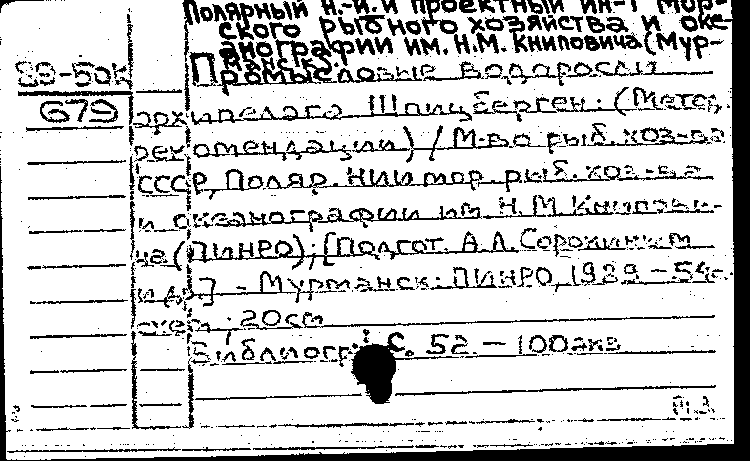 Полярный н.-и. и проектный ин-т мор-
ского рыбного хозяйства и оке-
анографии им. Н.М. Книповича (Мур-
манск).
89-50к Промысловые водоросли
679 архипелага Шпицберген: (Метод.
рекомендации) / М-во рыб. хоз-ва
СССР, Поляр. НИИ мор. рыб. хоз-ва
и океанографии им. Н.М. Книпови-
ча (ПИНРО); [Подгот. А.Л. Сорокиным
и др.] - Мурманск: ПИНРО, 1989 - 54с.
схем.; 20см
Библиогр.: с. 52. - 100экз